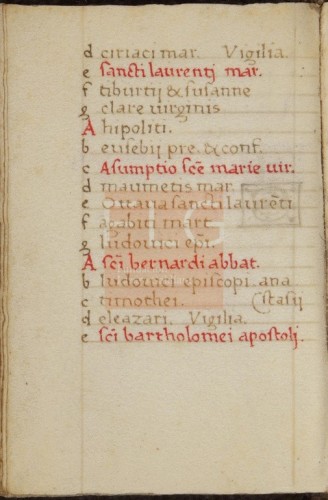 d ciriaci mar. Vigilia.
e sancti laurentj mar.
f tiburtij & susanne
g clare uirginis
A hipoliti.
b eusebij pre. & conf.
c Asumptio scẽ marie uir.
d mametis mar.
e Octaua sancti laurẽti
f agabiti mart
g ludouici ep̃i.
A scĩ bernardi abbat.
b ludouici episcopi ana
c timothei. stasij
d eleazari. Vigilia.
e scĩ bartholomei apostolj.